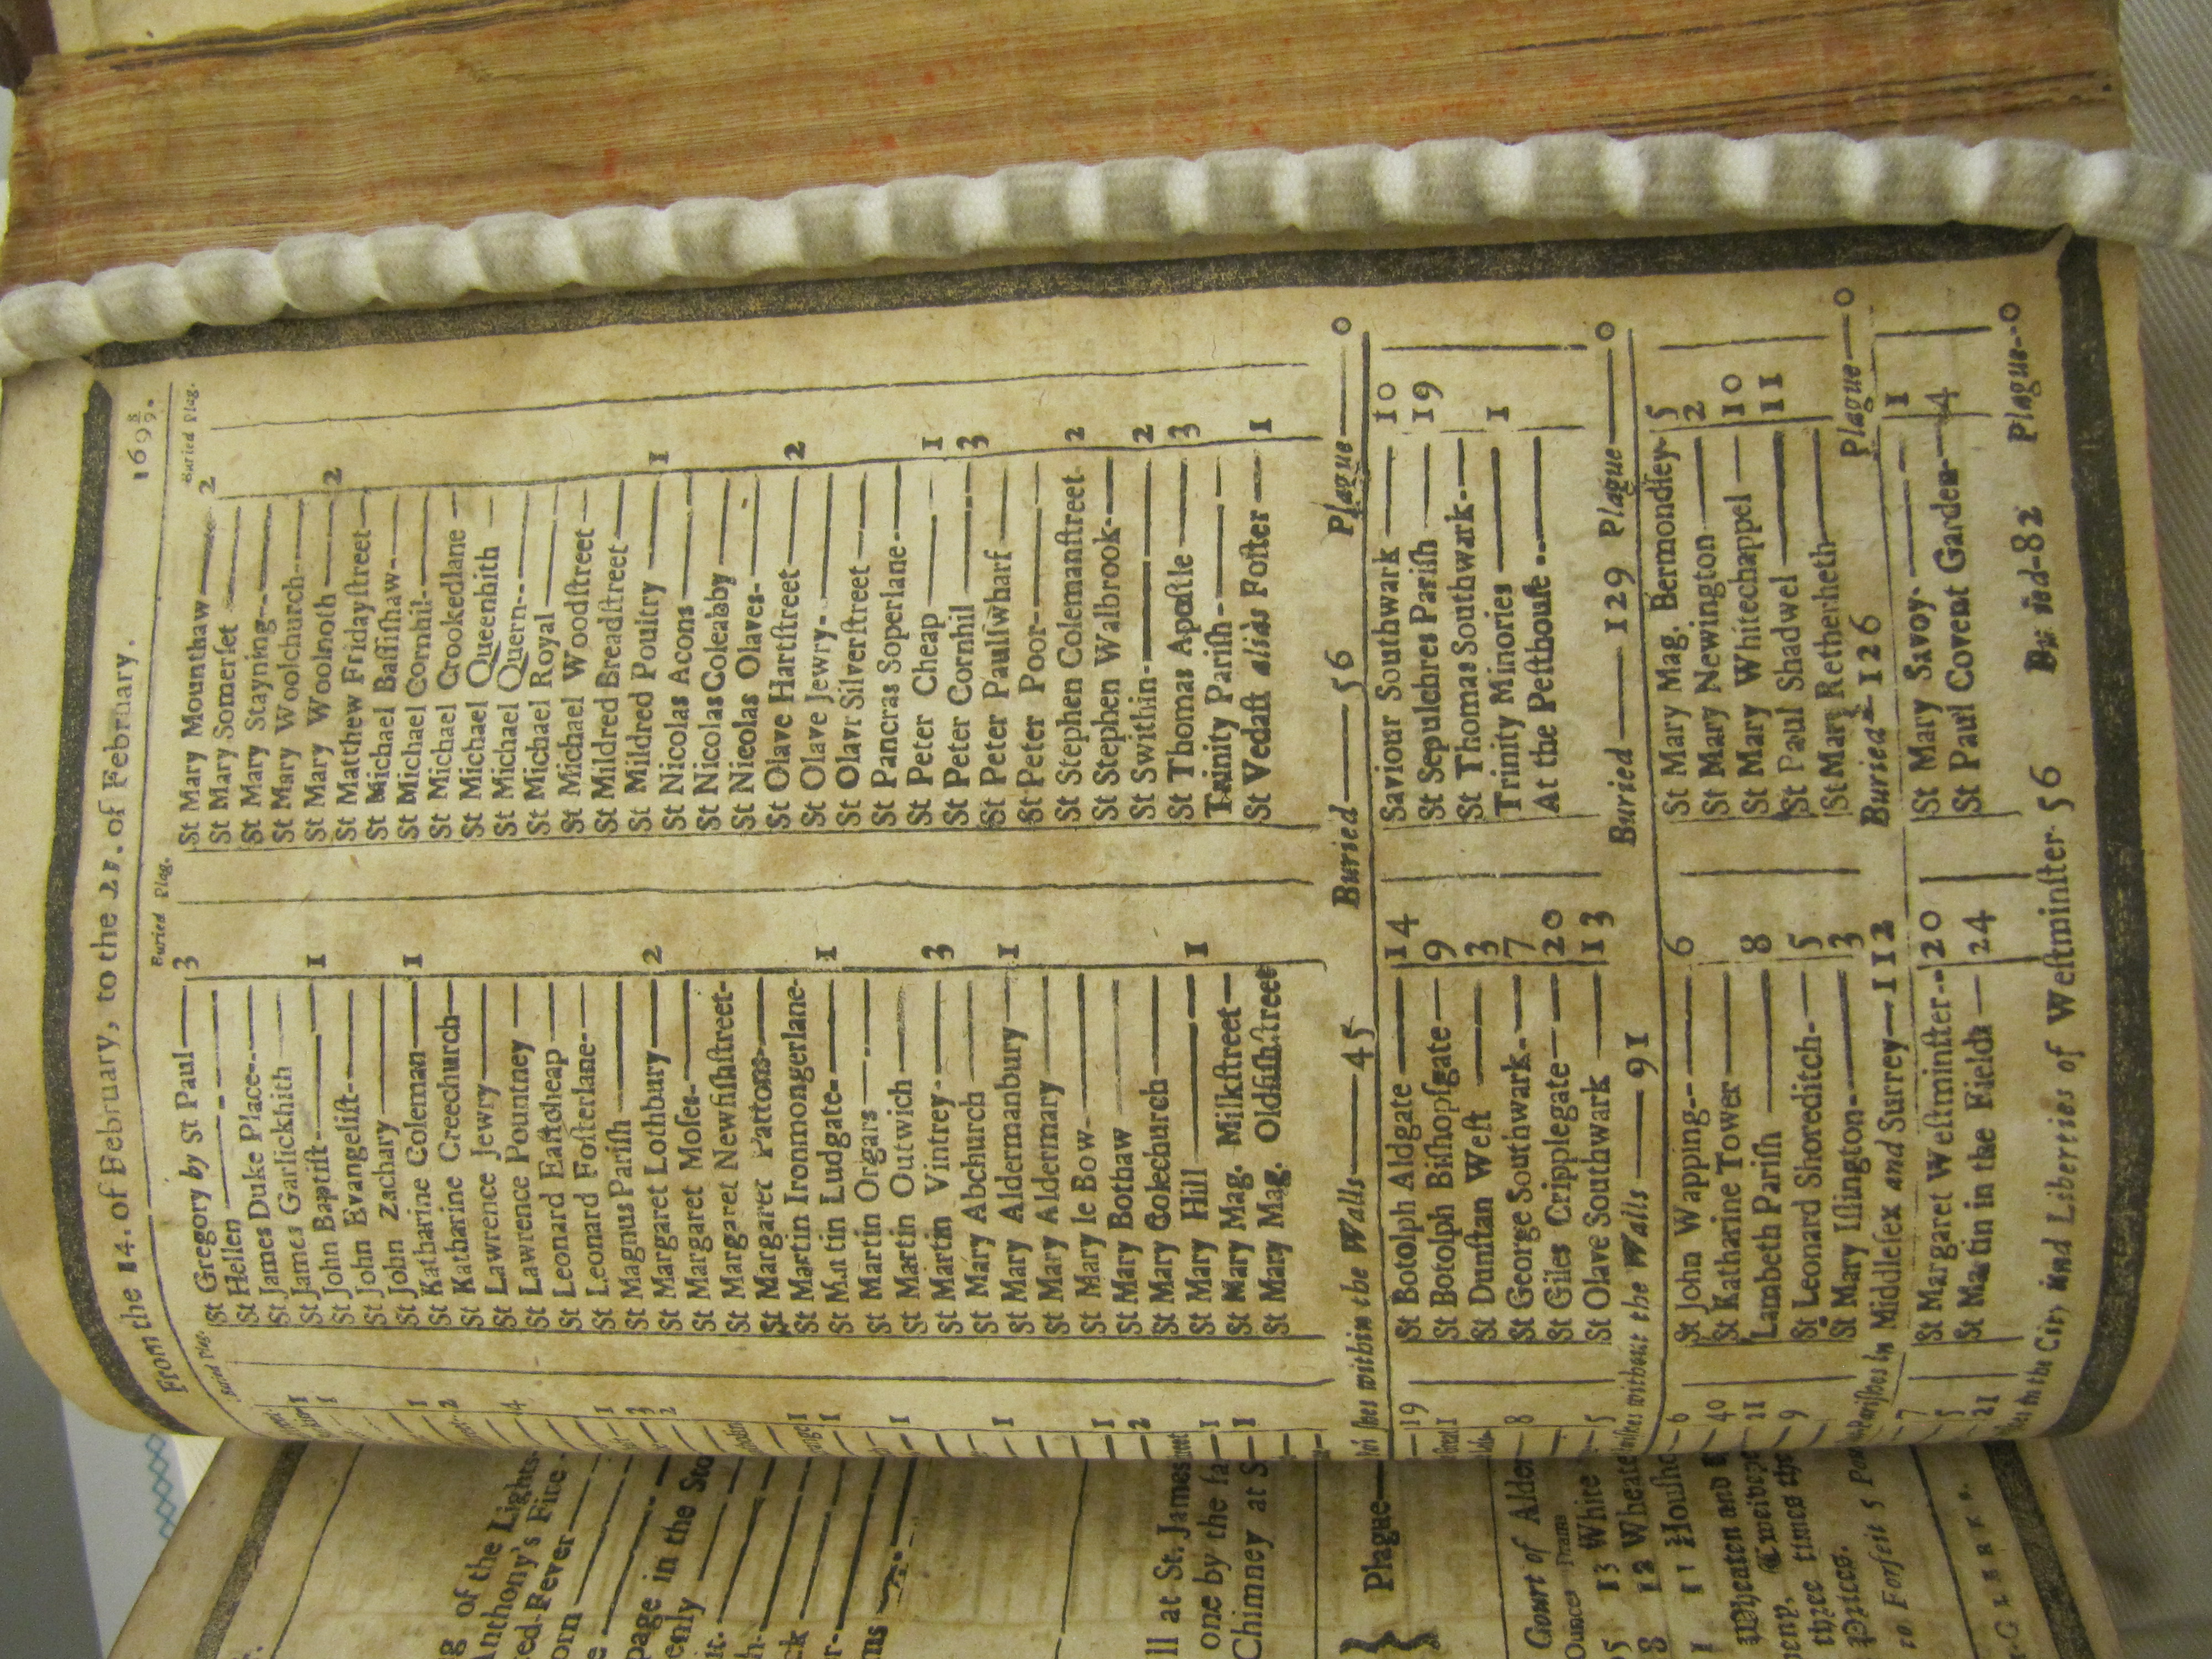 From the 14. of February, to the 21. of February. 1698/9.
Buried Plag.
St Gregory by St Paul— 3
St Hellen —
St James Duke Place—
St James Garlickhith —
St John Baptist— 1
St John Evangelist—
St John Zachary —
St Katharine Coleman— 1
St Katharine Creechurch—
St Lawrence Jewry—
St Lawrence Pountney —
St Leonard Eastcheap —
St Leonard Fosterlane—
St Magnus Parish —
St Margaret Lothbury— 2
St Margaret Moses—
St Margaret Newfishstreet-
St Margaret Pattons—
St Martin Ironmongerlane-
St Martin Ludgate— 1
St Martin Orgars —
St Martin Outwich —
St Martin Vintrey— 3
St Mary Abchurch —
St Mary Aldermanbury— 1
St Mary Aldermary —
St Mary le Bow—
St Mary Bothaw —
St Mary Colechurch—
St Mary Hill — 1
St Mary Mag. Milkstreet—
St Mary Mag. Oldfishstreet
Buried Plag.
St Mary Mounthaw — 2
St Mary Somerset —
St Mary Stayning—
St Mary Woolchurch—
St Mary Woolnoth — 2
St Matthew Fridaystreet—
St Michael Bassishaw—
St Michael Cornhil—
St Michael Crookedlane —
St Michael Queenhith —
St Michael Quern—
St Michael Royal —
St Michael Woodstreet —
St Mildred Breadstreet —
St Mildred Poultry — 1
St Nicolas Acons —
St Nicolas Coleabby —
St Nicolas Olaves—
St Olave Hartstreet — 2
St Olave Jewry—
St Olave Silverstreet —
St Pancras Soperlane—
St Peter Cheap — 1
St Peter Cornhil — 3
St Peter Paulswharf —
St Peter Poor—
St Stephen Colemanstreet- 2
St Stephen Walbrook—
St Swithin— 2
St Thomas Apostle — 3
Trinity Parish—
St Vedast aliàs Foster — 1
within the Walls— 45 Buried— 56 Plague— 0
19
St Botolph Aldgate — 14
St Botolph Bishopsgate— 9
St Dunstan West — 3
St George Southwark— 7
St Giles Cripplegate— 20
St Olave Southwark — 13
Saviour Southwark — 10
St Sepulchres Parish — 19
St Thomas Southwark—
Trinity Minories — 1
At the Pesthouse —
without the Walls — 91 Buried— 129 Plague— 0
St John Wapping— 6
St Katharine Tower—
Lambeth Parish — 8
St Leonard Shoreditch— 5
St Mary Islington— 3
St Mary Mag. Bermondsey- 5
St Mary Newington— 2
St Mary Whitechappel — 10
St Paul Shadwel — 11
St Mary Retherheth—
Parishes in Middlesex and Surrey— 112 Buried— 126 Plague— 0
St Margaret Westminster— 20
St Martin in the Fields — 24
St Mary Savoy— 1
St Paul Covent Garden— 4
in the City and Liberties of Westminster- 56 Buried-82 Plague-0
of the Lights
Anthony's Fire
Fever
page in the Sto
ll at St. James
one by the fa
Chimney at S
Plague—
Court of Alder
Ounces Drams
13 White
12 Wheate
11 Housho
Wheaten and
three times the
Prices.
to Forfeit 5 Po